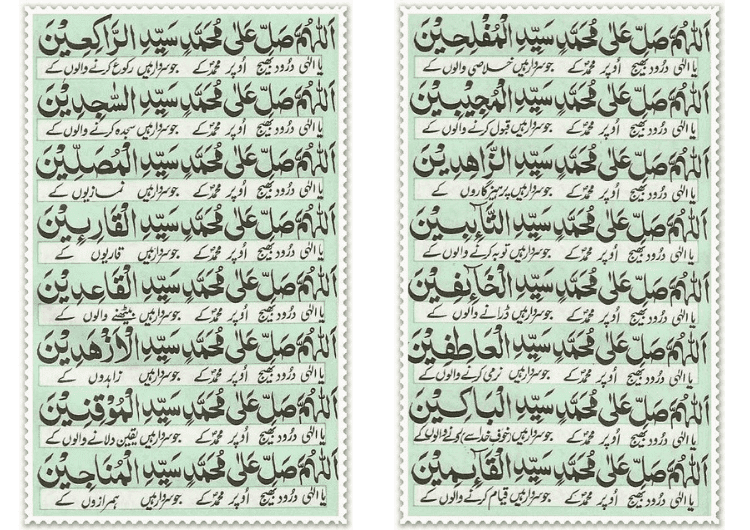 اَللّٰهُمَّ صَلِّ عَلٰى مُحَمَّدٍ سَيِّدِ الْمُفْلِحِيْنَ
یا الٰہی درُود بھیج اُوپر محمدؐ کے جو سردار ہیں خلاصی والوں کے
اَللّٰهُمَّ صَلِّ عَلٰى مُحَمَّدٍ سَيِّدِ الْمُجِيْبِيْنَ
یا الٰہی درُود بھیج اُوپر محمدؐ کے جو سردار ہیں قبول کرنے والوں کے
اَللّٰهُمَّ صَلِّ عَلٰى مُحَمَّدٍ سَيِّدِ الزَّاهِدِيْنَ
یا الٰہی درُود بھیج اُوپر محمدؐ کے جو سردار ہیں پرہیزگاروں کے
اَللّٰهُمَّ صَلِّ عَلٰى مُحَمَّدٍ سَيِّدِ التَّآئِبِيْنَ
یا الٰہی درُود بھیج اُوپر محمدؐ کے جو سردار ہیں توبہ کرنے والوں کے
اَللّٰهُمَّ صَلِّ عَلٰى مُحَمَّدٍ سَيِّدِ الْخَآئِفِيْنَ
یا الٰہی درُود بھیج اُوپر محمدؐ کے جو سردار ہیں ڈرانے والوں کے
اَللّٰهُمَّ صَلِّ عَلٰى مُحَمَّدٍ سَيِّدِ الْعَاطِفِيْنَ
یا الٰہی درُود بھیج اُوپر محمدؐ کے جو سردار ہیں نرمی کرنے والوں کے
اَللّٰهُمَّ صَلِّ عَلٰى مُحَمَّدٍ سَيِّدِ الْبَاكِيْنَ
یا الٰہی درُود بھیج اُوپر محمدؐ کے جو سردار ہیں خوف خدا سے والوں کے
اَللّٰهُمَّ صَلِّ عَلٰى مُحَمَّدٍ سَيِّدِ الْقَآئِمِيْنَ
یا الٰہی درُود بھیج اُوپر محمدؐ کے جو سردار ہیں قیام کرنے والوں کے
اَللّٰهُمَّ صَلِّ عَلٰى مُحَمَّدٍ سَيِّدِ الرَّاكِعِيْنَ
یا الٰہی درُود بھیج اُوپر محمدؐ کے جو سردار ہیں رکوع کرنے والوں کے
اَللّٰهُمَّ صَلِّ عَلٰى مُحَمَّدٍ سَيِّدِ السّٰجِدِيْنَ
یا الٰہی درُود بھیج اُوپر محمدؐ کے جو سردار ہیں سجدہ کرنے والوں کے
اَللّٰهُمَّ صَلِّ عَلٰى مُحَمَّدٍ سَيِّدِ الْمُصَلِّيْنَ
یا الٰہی درُود بھیج اُوپر محمدؐ کے جو سردار ہیں نمازیوں کے
اَللّٰهُمَّ صَلِّ عَلٰى مُحَمَّدٍ سَيِّدِ الْقَارِئِيْنَ
یا الٰہی درُود بھیج اُوپر محمدؐ کے جو سردار ہیں قاریوں کے
اَللّٰهُمَّ صَلِّ عَلٰى مُحَمَّدٍ سَيِّدِ الْقَاعِدِيْنَ
یا الٰہی درُود بھیج اُوپر محمدؐ کے جو سردار ہیں بیٹھنے والوں کے
اَللّٰهُمَّ صَلِّ عَلٰى مُحَمَّدٍ سَيِّدِ الْاَزْهَدِيْنَ
یا الٰہی درُود بھیج اُوپر محمدؐ کے جو سردار ہیں زاہدوں کے
اَللّٰهُمَّ صَلِّ عَلٰى مُحَمَّدٍ سَيِّدِ الْمُوْقِنِيْنَ
یا الٰہی درُود بھیج اُوپر محمدؐ کے جو سردار ہیں یقین دلانے والوں کے
اَللّٰهُمَّ صَلِّ عَلٰى مُحَمَّدٍ سَيِّدِ الْمُنَاجِيْنَ
یا الٰہی درُود بھیج اُوپر محمدؐ کے جو سردار ہیں ہمرازوں کے